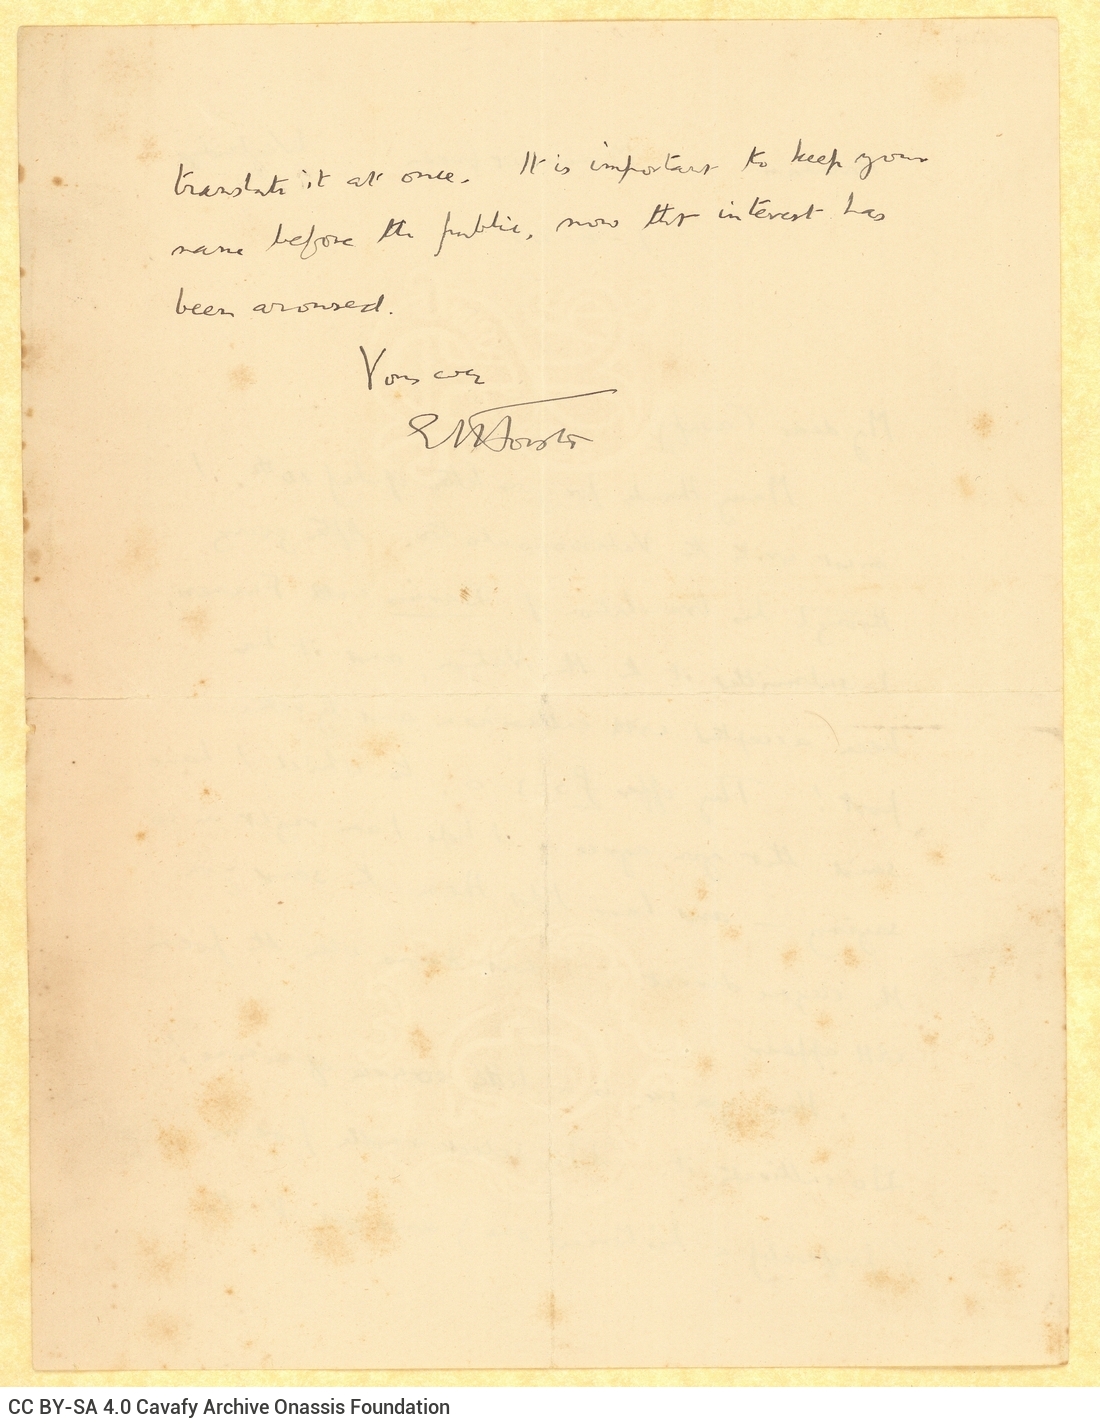 translate it at once. It is important to keep your
name before the public, now that interest has
been aroused.
Yours ever
EMForster
CC BY-SA 4.0 Cavafy Archive Onassis Foundation